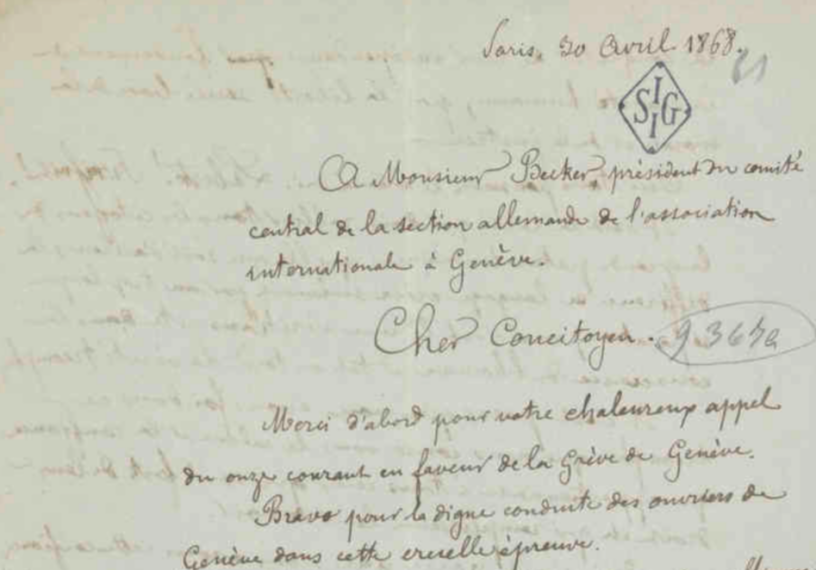 Paris, 30 Avril 1868.
21
SIIG
A Monsieur Becker, président du comité
central de la section allemande de l'association
internationale à Genève.
Cher Concitoyen.
9 367a
Merci d'abord pour votre chaleureux appel
du onze courant en faveur de la Grève de Genève.
Bravo pour la digne conduite des ouvriers de
Genève dans cette cruelle épreuve.